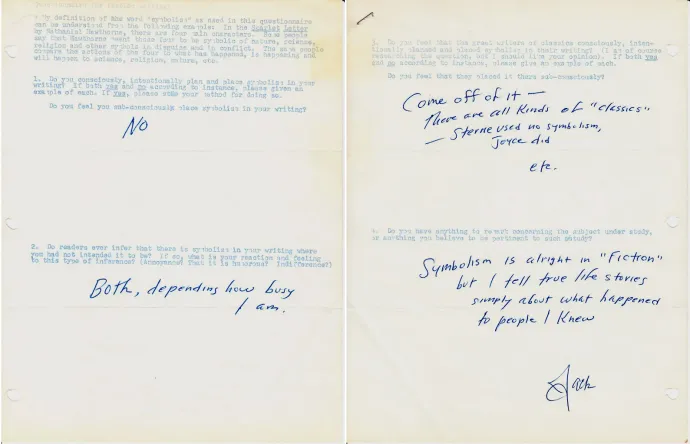 My definition of the word "symbolism" as used in this questionnaire
can be understood from the following example: In the Scarlet Letter
by Nathaniel Hawthorne, there are four main characters. Some people
say that Hawthorne meant those four to be symbolic of nature, science,
religion and other symbols in disguise and in conflict. The same people
compare the actions of the four to what has happened, is happening and
will happen to science, religion, nature, etc.
1. Do you consciously, intentionally plan and place symbolism in your
writing? If both yes and no according to instance, please given an
example of each. If yes, please some your method for doing so.
Do you feel you sub-consciously place symbolism in your writing?
No
2. Do readers ever infer that there is symbolism in your writing where
you had not intended it to be? If so, what is your reaction and feeling
to this type of inference? (Annoyance? That it is humorous? Indifference?)
Both, depending how busy
I am.
3. Do you feel that the great writers of classics consciously, inten-
tionally planned and placed symbols in their writing? (I am of course
researching the question, but I should like your opinion). If both yes
and no according to instance, please give an example of each.
Do you feel that they placed it there sub-consciously?
Come off of it —
There are all kinds of "classics"
— Sterne used no symbolism,
Joyce did
etc.
4. Do you have anything to remark concerning the subject under study,
or anything you believe to be pertinent to such study?
Symbolism is alright in "Fiction"
but I tell true life stories
simply about what happened
to people I knew
Jack